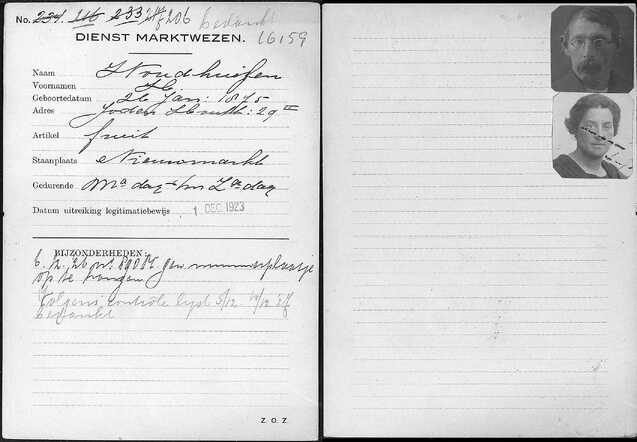 No. 234. 116 233 206 bedankt
DIENST MARKTWEZEN. 16159
Naam
Voornamen
Geboortedatum 26 Jan: 1875
Adres Joden 29 II
Artikel fruit
Staanplaats Nieuwmarkt
Gedurende Ma dag t/m Za dag
Datum uitreiking legitimatiebewijs 1 DEC. 1923
BIJZONDERHEDEN:
6.2.26 geen nummerplaatje
op te hangen
Volgens controle lijst 5/12
bedankt
Z. O. Z.